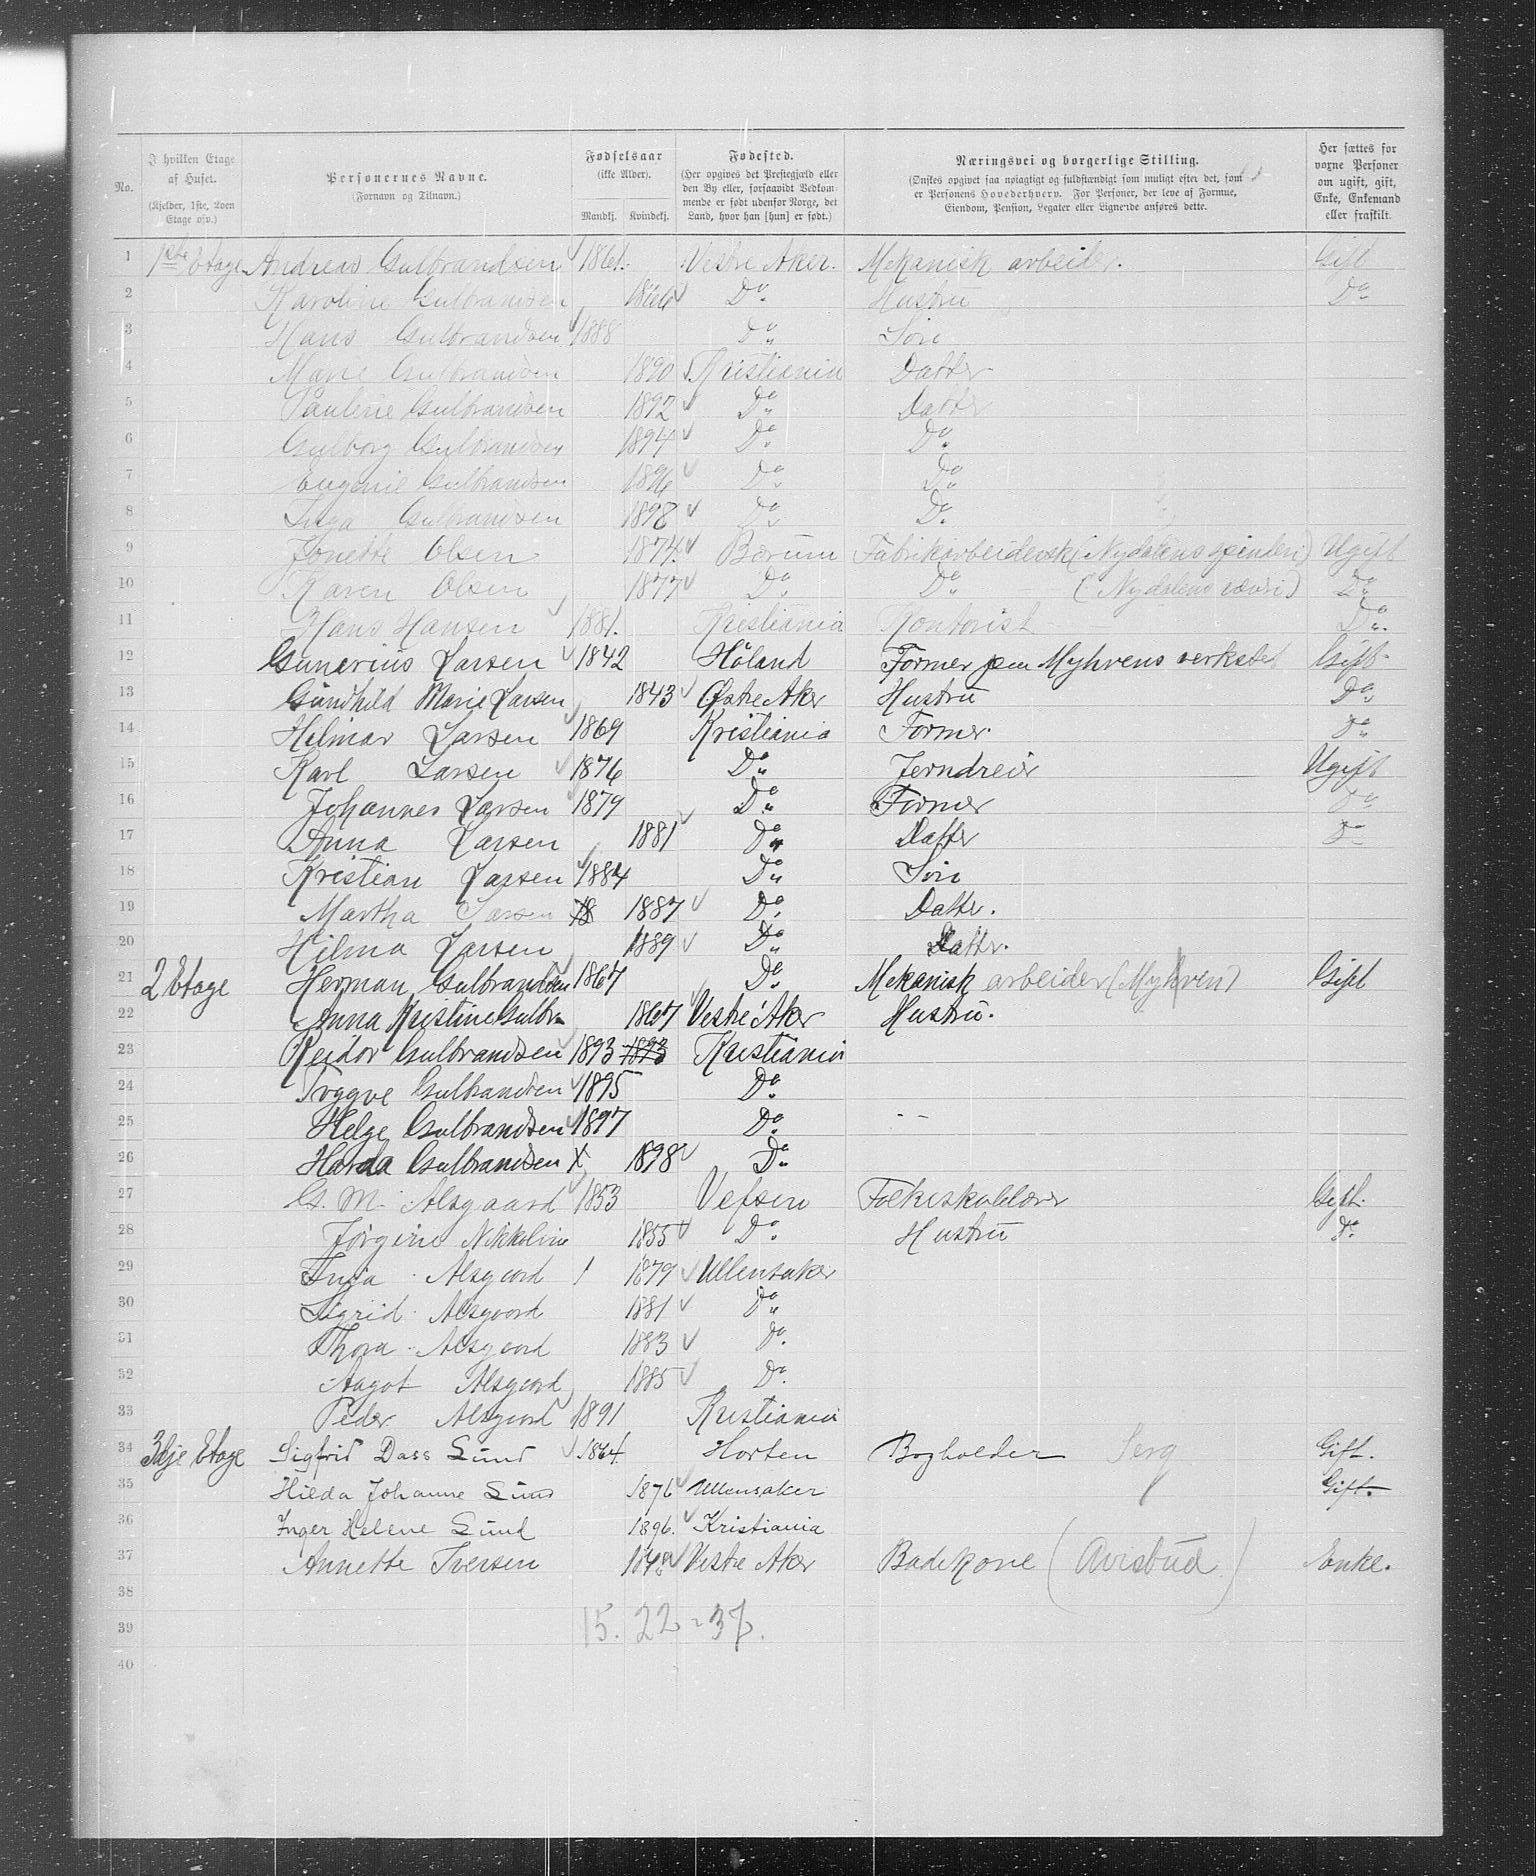 No. I hvilken Etage af Huset. (Kjelder, 1ste, 2den Etage osv.) Personernes Navne. (Fornavn og Tilnavn.) Fødselsaar (ikke Alder). Mandkj. Kvindekj. Fødested. (Her opgives det Prestegjæld eller den By eller, forsaavidt Vedkommende er født udenfor Norge, det Land, hvor han [hun] er født.) Næringsvei og borgerlige Stilling. (Ønskes opgivet saa nøiagtigt og fuldstændigt som muligt efter det, som er Personens Hovederhverv. For Personer, der leve af Formue, Eiendom, Pension, Legater eller Lignende anføres dette. Her sættes for voxne Personer om ugift, gift, Enke, Enkemand eller fraskilt.
1 1ste Etage Andreas Gulbrandsen 1861. Vestre Aker. Mekanisk arbeider. Gift
2 Karoline Gulbrandsen 1866 Do Hustru Do
3 Hans Gulbrandsen 1888 Do Søn
4 Marie Gulbrandsen 1890 Kristiania Datter
5 Pauline Gulbrandsen 1892 Do Datter
6 Gulborg Gulbrandsen 1894 Do Do
7 Eugenie Gulbrandsen 1896 Do Do
8 Inga Gulbrandsen 1898 Do Do
9 Jonette Olsen 1874. Bærum Fabrikarbeiderske (Nydalens spinderi) Ugift
10 Karen Olsen 1877 Do Do (Nydalens væveri) Do
11 Hans Hansen 1881. Kristiania Kontorist Do
12 Gunerius Larsen 1842 Høland Former paa Myhrens verksted Gift
13 Gundhild Marie Larsen 1843 Østre Aker Hustru Do
14 Hilmar Larsen 1869 Kristiania Former. Do
15 Karl Larsen 1876 Do Jerndreier Ugift
16 Johannes Larsen 1879 Do Former Do
17 Anna Larsen 1881 Do Datter Do
18 Kristian Larsen 1884 Do Søn
19 Martha Larsen 18 1887 Do Datter.
20 Hilma Larsen 1889 Do Datter.
21 2 Etage Herman Gulbrandsen 1867 Do Mekanisk arbeider (Myhren) Gift
22 Anna Kristine Gulbr 1867 Vestre Aker Hustru.
23 Reidar Gulbrandsen 1893 1893 Kristiania
24 Tryggve Gulbrandsen 1895 Do
25 Helge Gulbrandsen 1897 Do
26 Harda Gulbrandsen X 1898 Do
27 G. M. Alsgaard 1853 Vefsen Folkeskolelærer Gift.
28 Jørgine Nikkoline 1855 Do Hustru Do
29 Inga Alsgaard 1 1879 Ullensaker
30 Sigrid Alsgaard 1881 Do
31 Thora Alsgaard 1883 Do
32 Aagot Alsgaard 1885 Do
33 Peder Alsgaard 1891 Kristiania
34 3dje Etage Sigfrid Dass Sund 1864. Horten Bogholder Gift.
35 Hilda Johanne Sund 1876 Ullensaker Gift.
36 Inger Helene Sund 1896. Kristiania
37 Annette Iversen 1848 Vestre Aker Badekone (Avisbud) Enke.
38
39 15. 22 = 37.
40